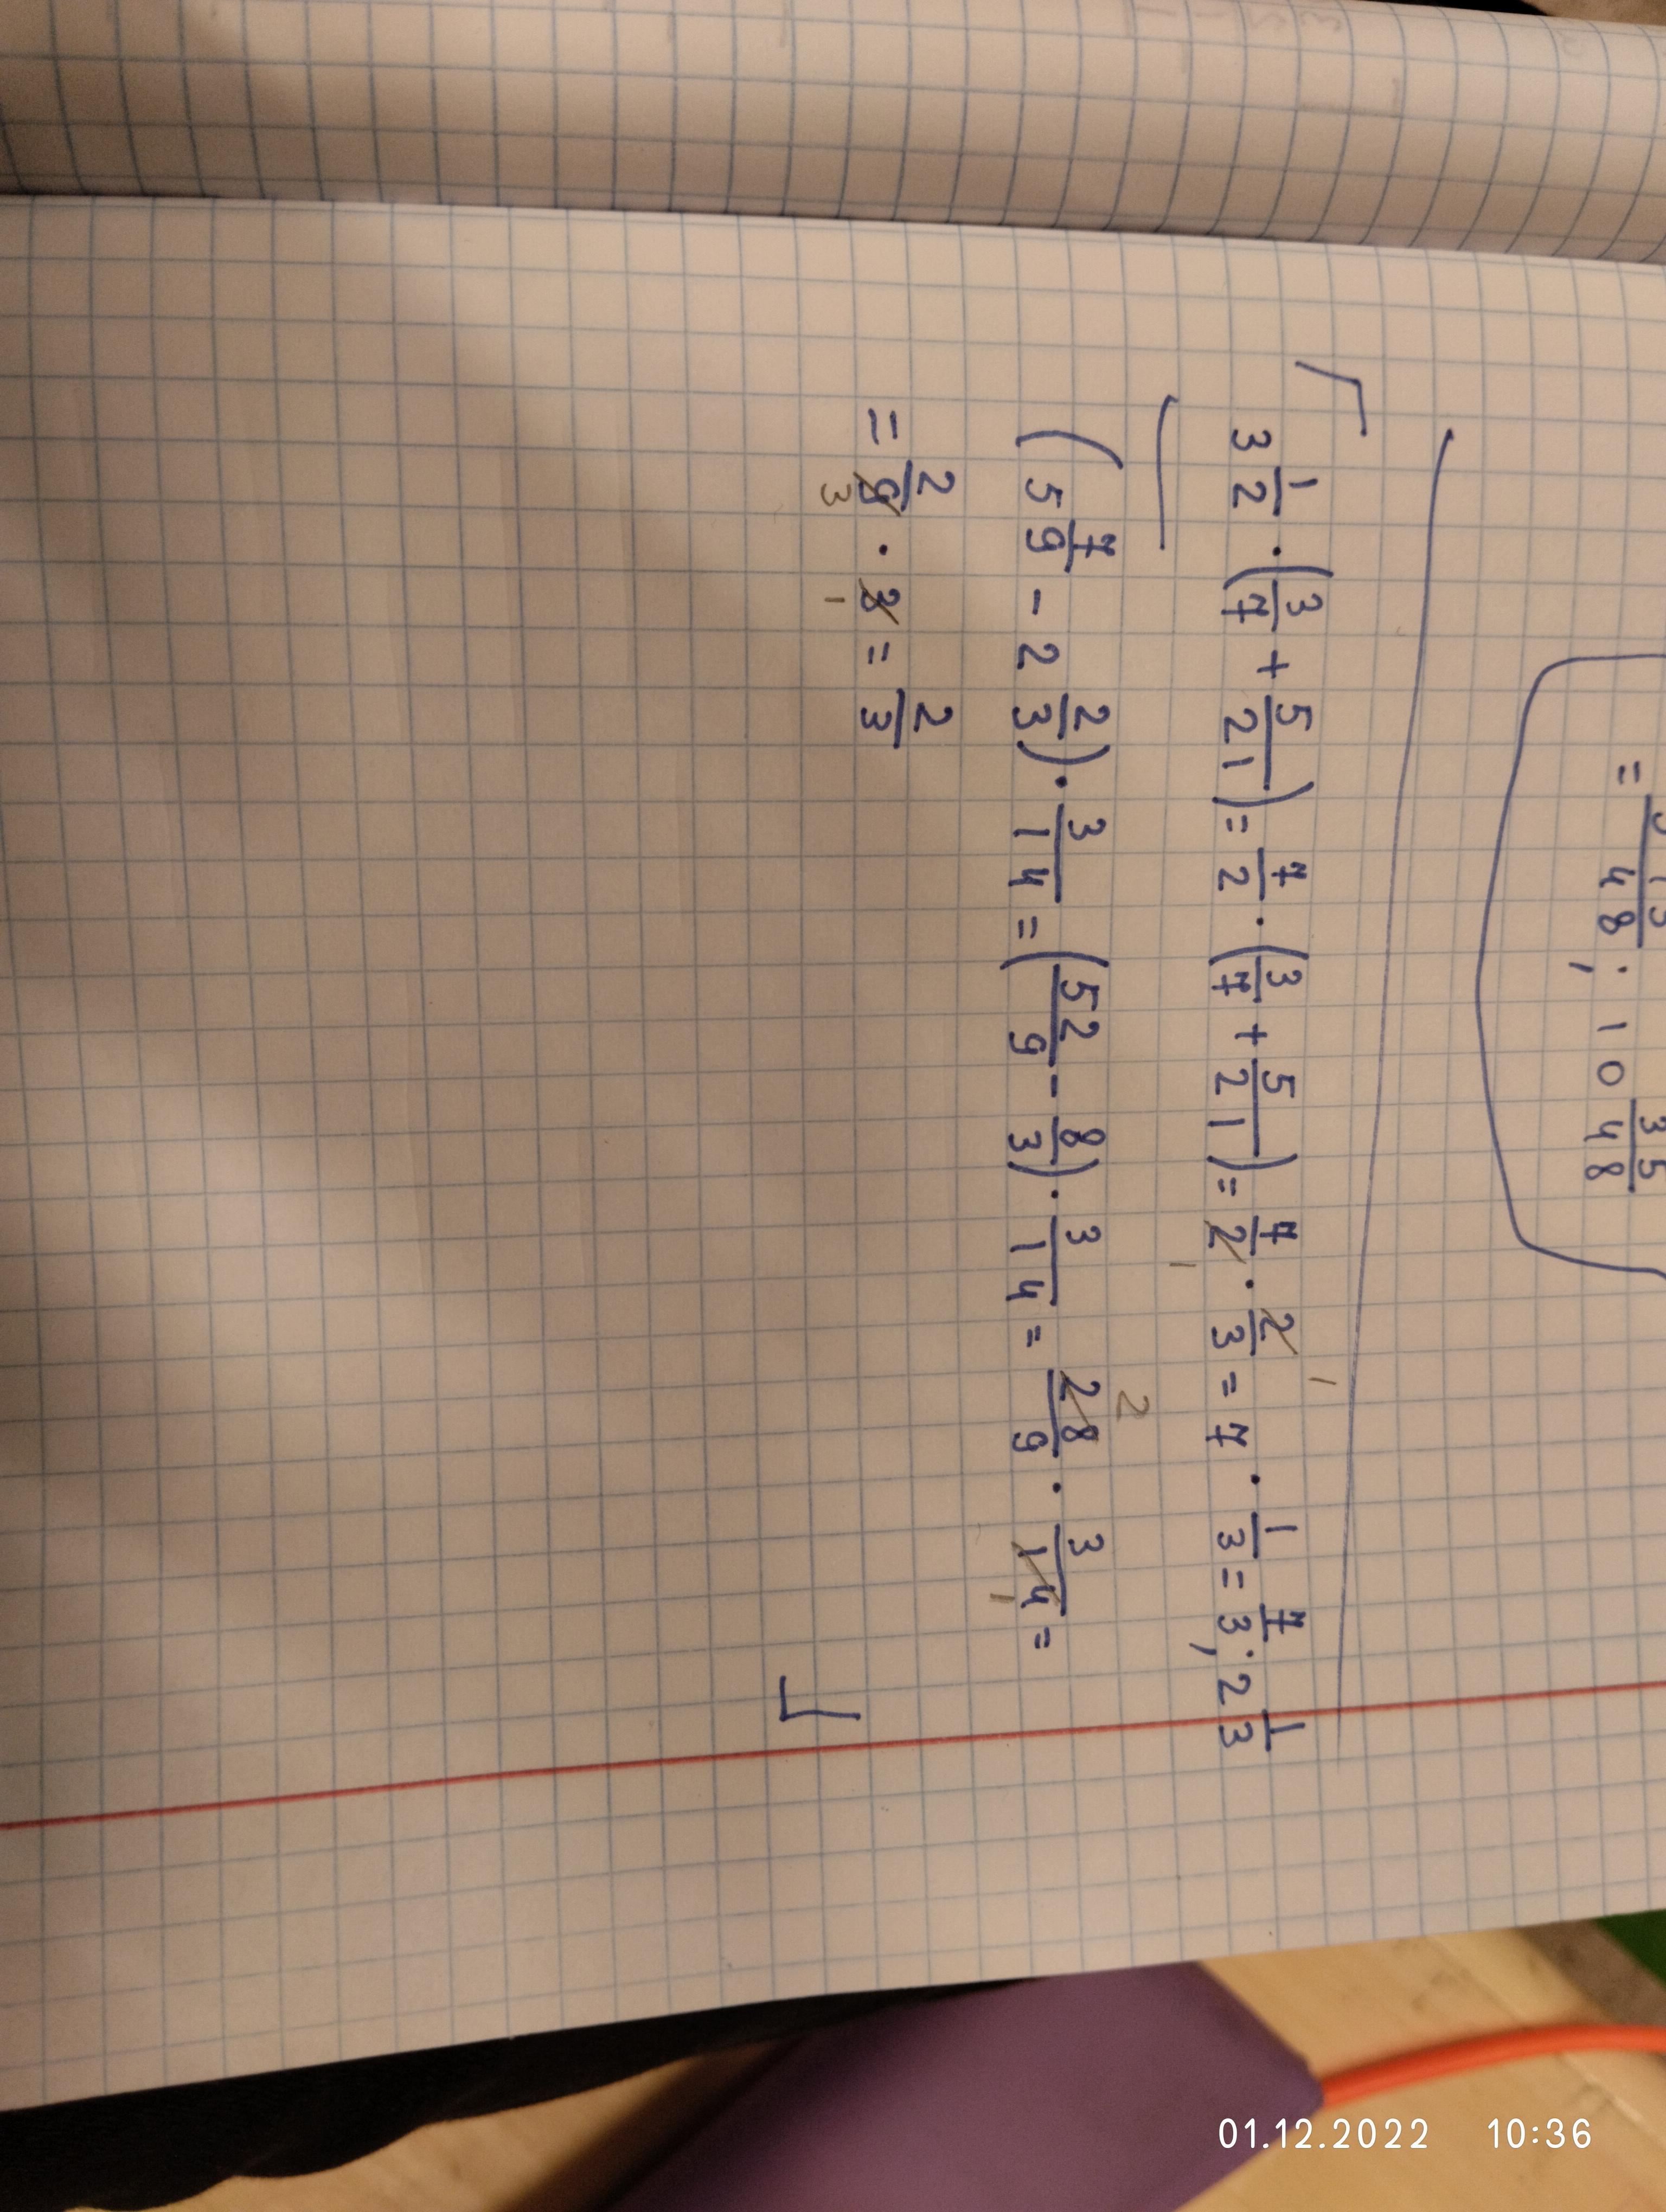 = 515/48; 10 35/48
3 1/2 · (3/7 + 5/21) = 7/2 · (3/7 + 5/21) = 7/2 · 2/3 = 7 · 1/3 = 7/3; 2 1/3
1 1
(5 7/9 - 2 2/3) · 3/14 = (52/9 - 8/3) · 3/14 = 28/9 · 3/14 =
2 1
= 2/9 · 3 = 2/3
3 1
01.12.2022 10:36